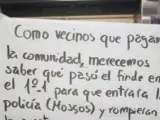 Como vecinos que pagan
la comunidad, merecemos
saber qué pasó el finde en
el 1º1 para que entrara la
policía (Mossos) y rompieran
la